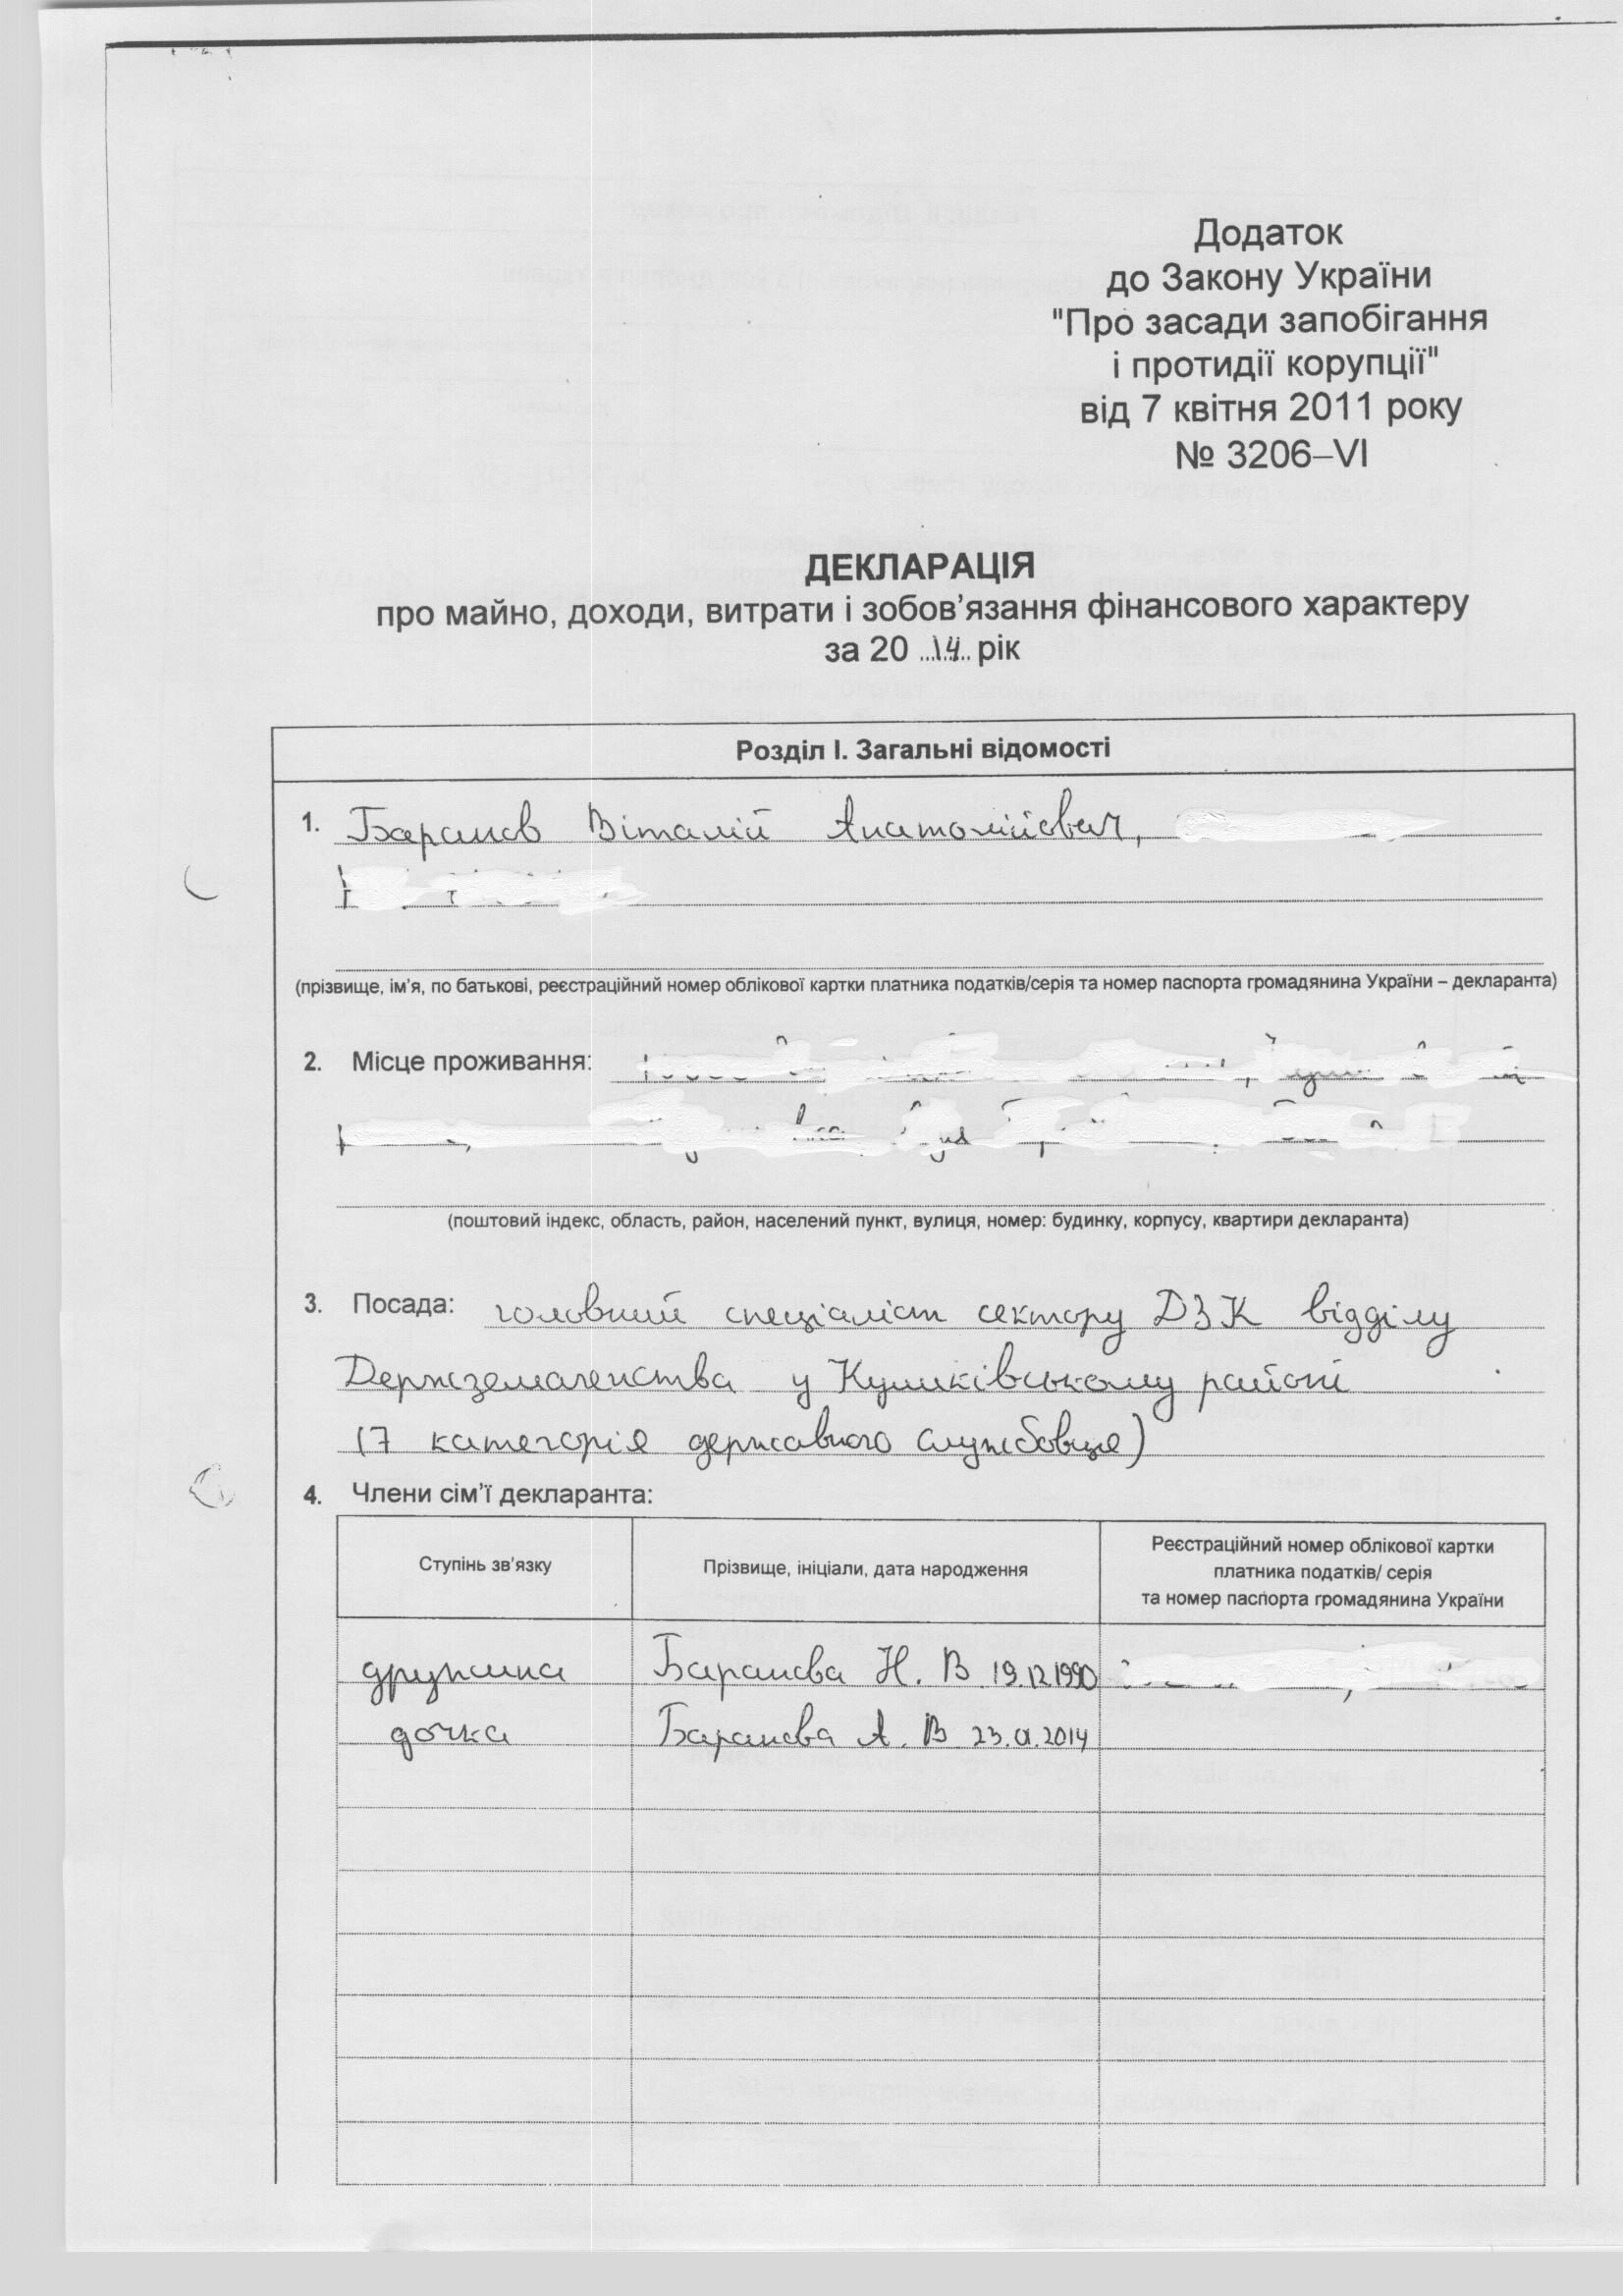 Додаток
до Закону України
"Про засади запобігання
і протидії корупції"
від 7 квітня 2011 року
№ 3206–VI
ДЕКЛАРАЦІЯ
про майно, доходи, витрати і зобов’язання фінансового характеру
за 20 14 рік
Розділ I. Загальні відомості
1. Баранов Віталій Анатолійович,
(прізвище, ім’я, по батькові, реєстраційний номер облікової картки платника податків/серія та номер паспорта громадянина України – декларанта)
2. Місце проживання:
(поштовий індекс, область, район, населений пункт, вулиця, номер: будинку, корпусу, квартири декларанта)
3. Посада: головний спеціаліст сектору ДЗК відділу
Держземагенства у Куликівському районі
(7 категорія державного службовця)
4. Члени сім’ї декларанта:
Ступінь зв’язку
Прізвище, ініціали, дата народження
Реєстраційний номер облікової картки
платника податків/ серія
та номер паспорта громадянина України
дружина Баранова Н. В 19.12.1990
дочка Баранова А. В